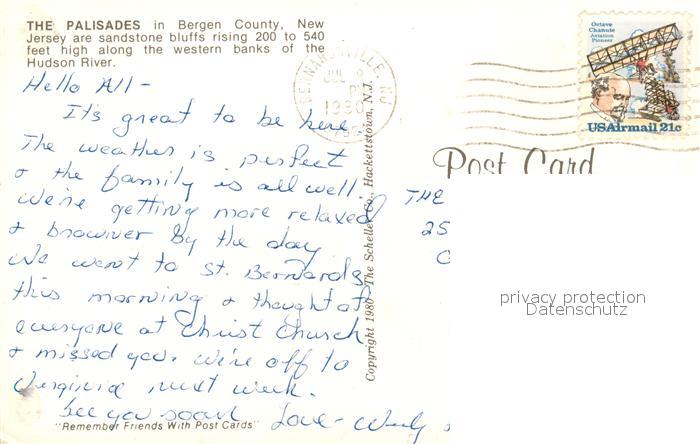 THE PALISADES in Bergen County, New
Jersey are sandstone bluffs rising 200 to 540
feet high along the western banks of the
Hudson River.
Hello All -
It's great to be here.
The weather is perfect
& the family is all well.
We're getting more relaxed
& browner by the day
We went to St. Bernards
this morning & thought of
everyone at Christ Church
& missed you. We're off to
Virginia next week.
See you soon! Love -
"Remember Friends With Post Cards"
Copyright 1980 The Scheller Co., Hackettstown, N.J.
BERNARDSVILLE, NJ
JUL 8
PM
1980
Octave
Chanute
Aviation
Pioneer
USAirmail 21c
Post Card
THE
25
privacy protection
Datenschutz